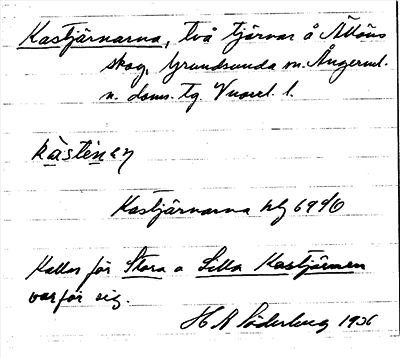 Kastjärnarna, två tjärnar å
skog, Grundsunda sn. Ångerml.
n. doms. tg. Vnorrl. l.
Kastjärnarna
Kallas för Stora o Lilla Kastjärnen
var för sig.
H A Söderberg 1936